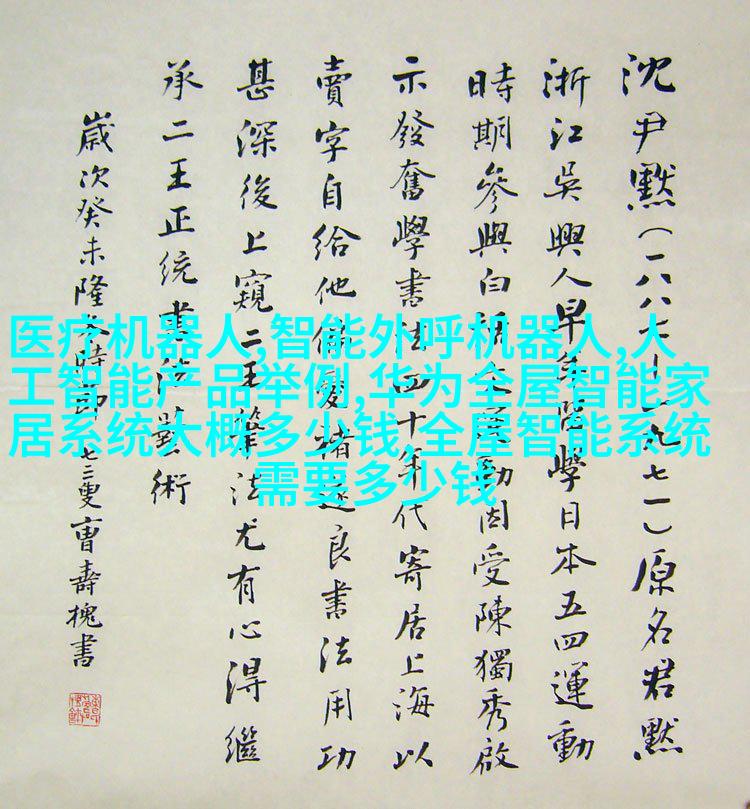 沈尹默(一八八七—一九七一)原名君默
浙江吳興人早年留學日本五四運動
時期參與白話文運動因受陳獨秀啟
示發奮學書法四十年代寄居上海以
賣字自給他偏愛褚遂良書法用功
甚深後上窺二王筆法尤有心得繼
承二王正統書法藝術
歲次癸未隆冬時節七二叟曹壽槐書
医疗机器人,智能外呼机器人,人
工智能产品举例,华为全屋智能家
居系统大概多少钱,全屋智能系统
需要多少钱